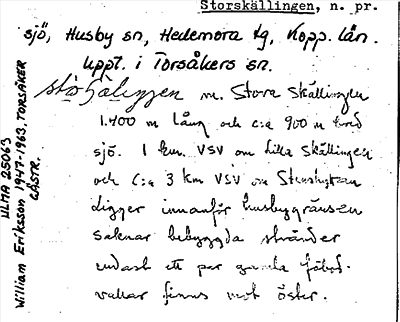 Storskällingen, n. pr.
sjö, Husby sn, Hedemora tg, Kopp. län.
Uppt. i Torsåkers sn.
m. Stora Skällingen
1.400 m lång och c:a 900 m bred
sjö. 1 km. VSV om Lilla Skällingen
och c:a 3 km VSV om Stenshyttan
Ligger innanför husbygränsen
saknar bebyggda stränder
endast ett par gamla fäbod-
vallar finns mot öster.
ULMA 25063
William Eriksson 1947-1963, TORSÅKER
GÄSTR.